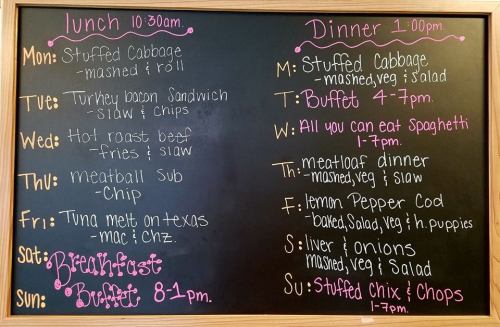 lunch 10:30am.
Mon: Stuffed Cabbage
-mashed & roll
Tue: Turkey bacon Sandwich
-slaw & chips
Wed: Hot roast beef
-fries & slaw
Thu: meatball Sub
-Chip
Fri: Tuna melt on texas
-mac & chz.
Sat: Breakfast
Sun: Buffet 8-1pm.
Dinner 1:00pm.
M: Stuffed Cabbage
-mashed, veg & Salad
T: Buffet 4-7pm.
W: All you can eat Spaghetti
1-7pm.
Th: meatloaf dinner
-mashed, veg & slaw
F: lemon Pepper Cod
-baked, Salad, Veg & h.puppies
S: liver & onions
mashed, veg & Salad
Su: Stuffed Chix & Chops
1-7pm.